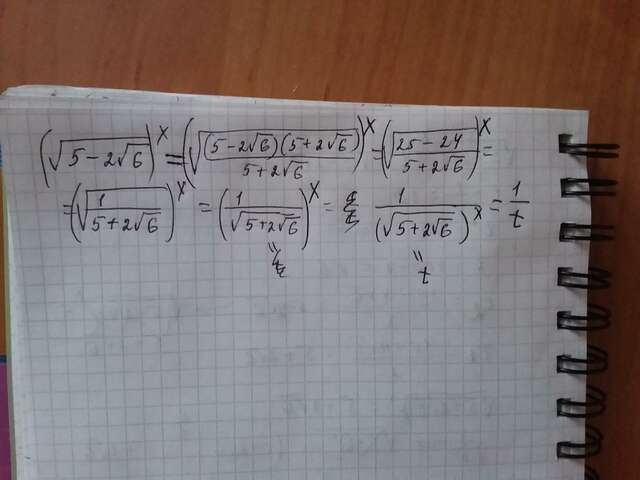 (√(5-2√6))^x = (√((5-2√6)(5+2√6)/(5+2√6)))^x = (√((25-24)/(5+2√6)))^x =
= (√(1/(5+2√6)))^x = (1/√(5+2√6))^x = 1/(√(5+2√6))^x = 1/t
" "
t